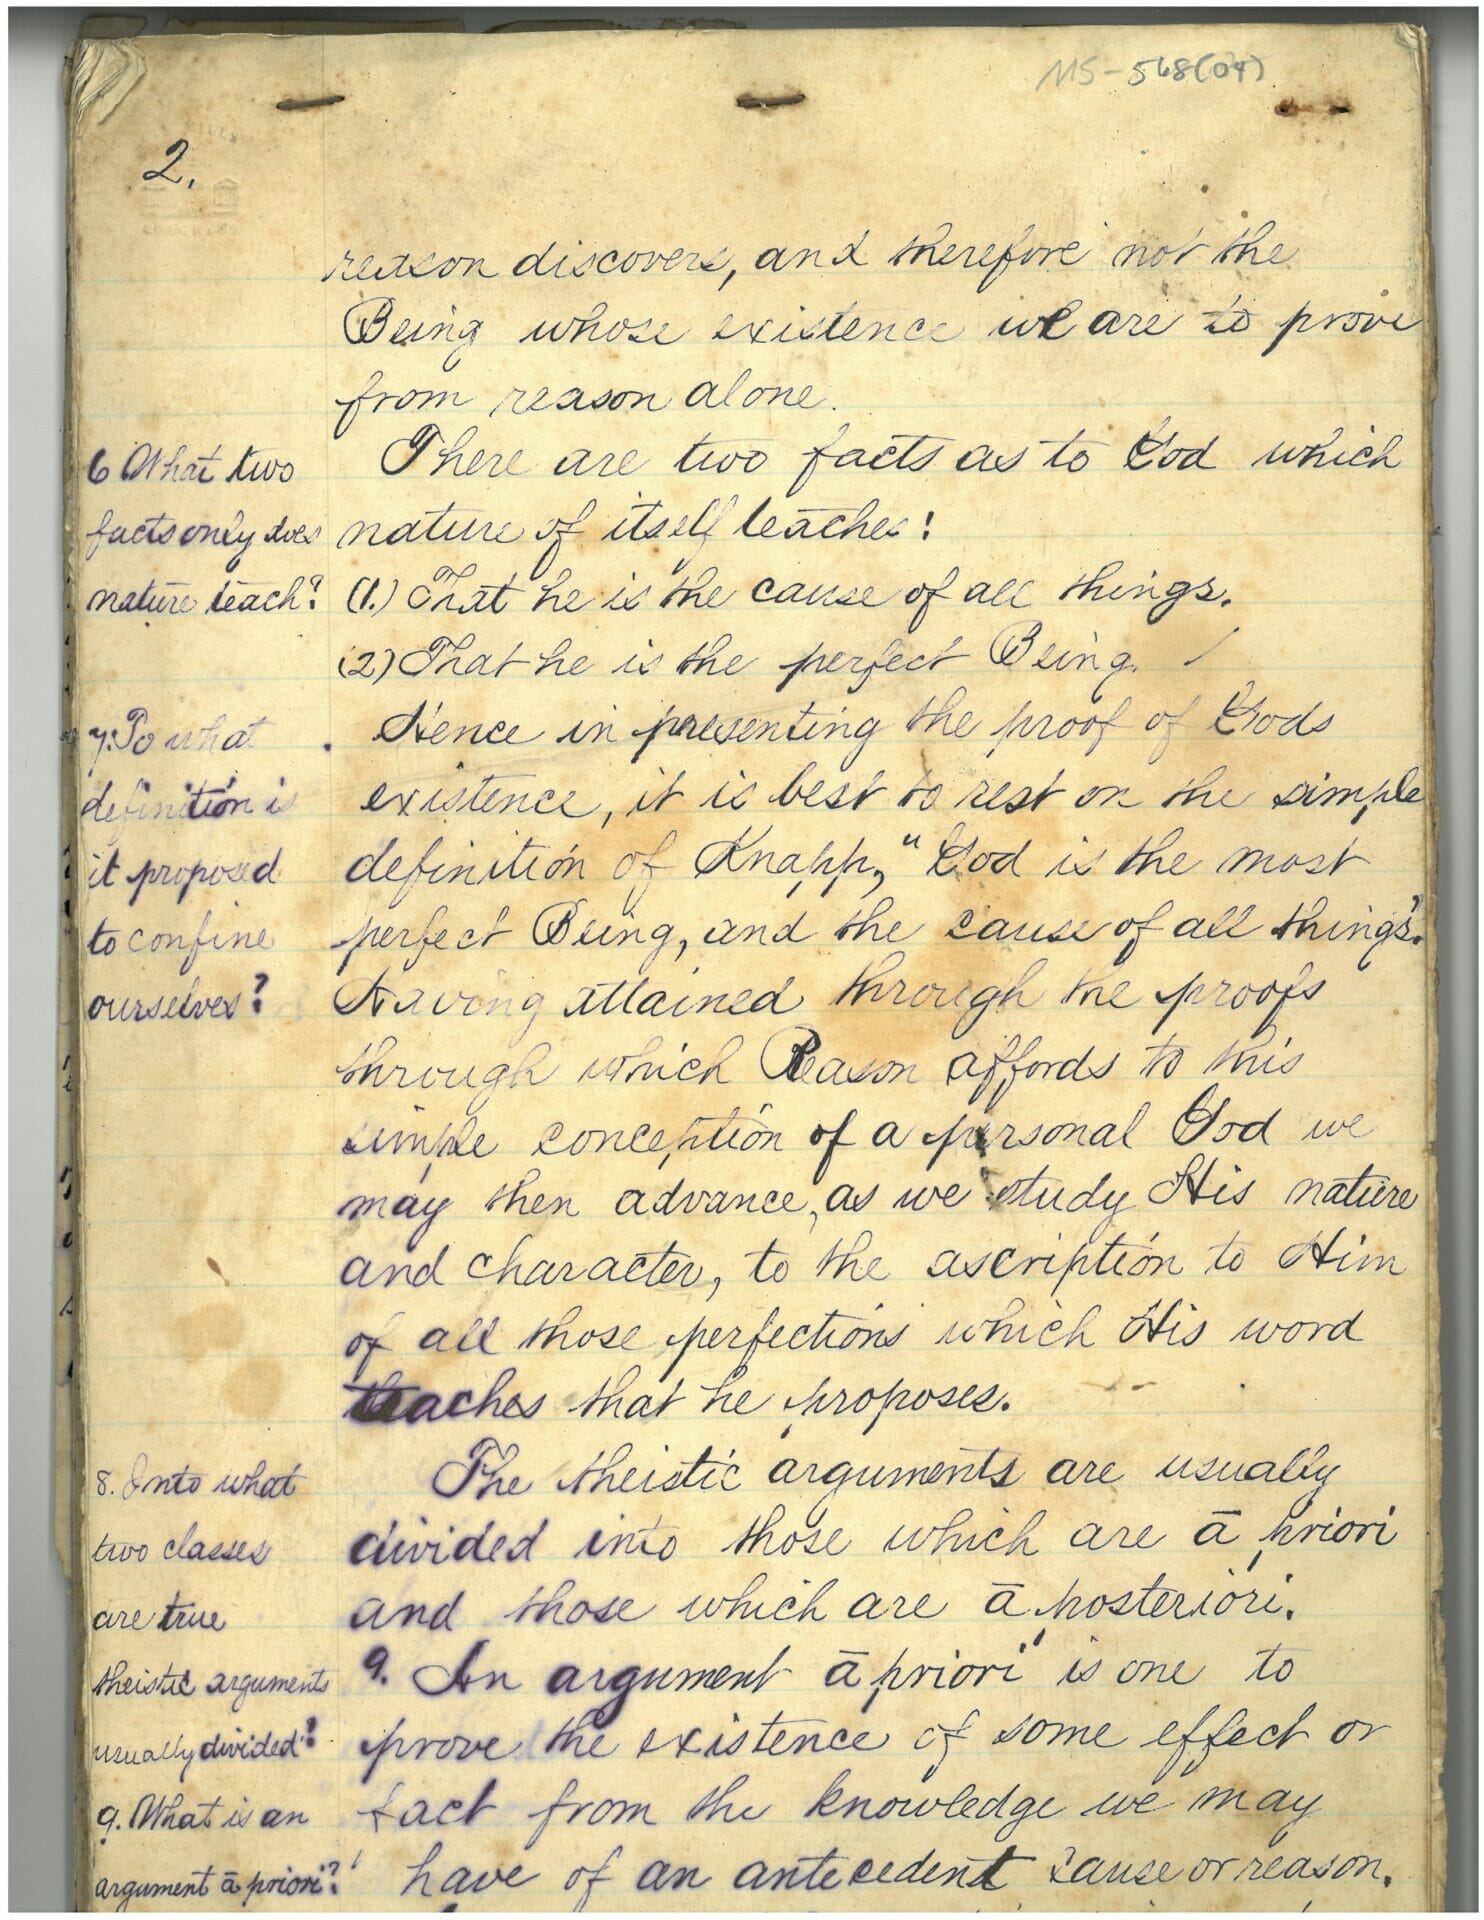 MS-568(04)
2.
reason discovers, and therefore not the
Being whose existence we are to prove
from reason alone.
6 What two
facts only does
nature teach?
There are two facts as to God which
nature of itself teaches:
(1.) That he is the cause of all things.
(2) That he is the perfect Being.
7. To what
definition is
it proposed
to confine
ourselves?
Hence in presenting the proof of Gods
existence, it is best to rest on the simple
definition of Knapp, "God is the most
perfect Being, and the cause of all things".
Having attained through the proofs
through which Reason affords to this
simple conception of a personal God we
may then advance, as we study His nature
and character, to the ascription to Him
of all those perfections which His word
teaches that he proposes.
8. Into what
two classes
are true
theistic arguments
usually divided?
The theistic arguments are usually
divided into those which are ā priori
and those which are ā posteriori.
9. What is an
argument ā priori?
9. An argument ā priori is one to
prove the existence of some effect or
fact from the knowledge we may
have of an antecedent cause or reason.